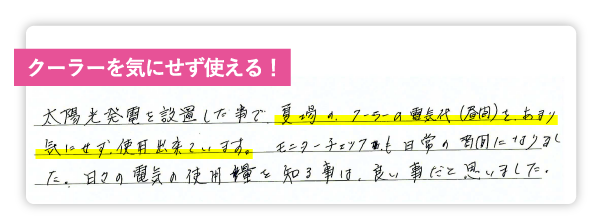 クーラーを気にせず使える！
太陽光発電を設置した事で、夏場の、クーラーの電気代(昼間)を、あまり
気にせず、使用出来ています。モニターチェックも日常の 間になりまし
た。日々の電気の使用量を知る事は、良い事だと思いました。